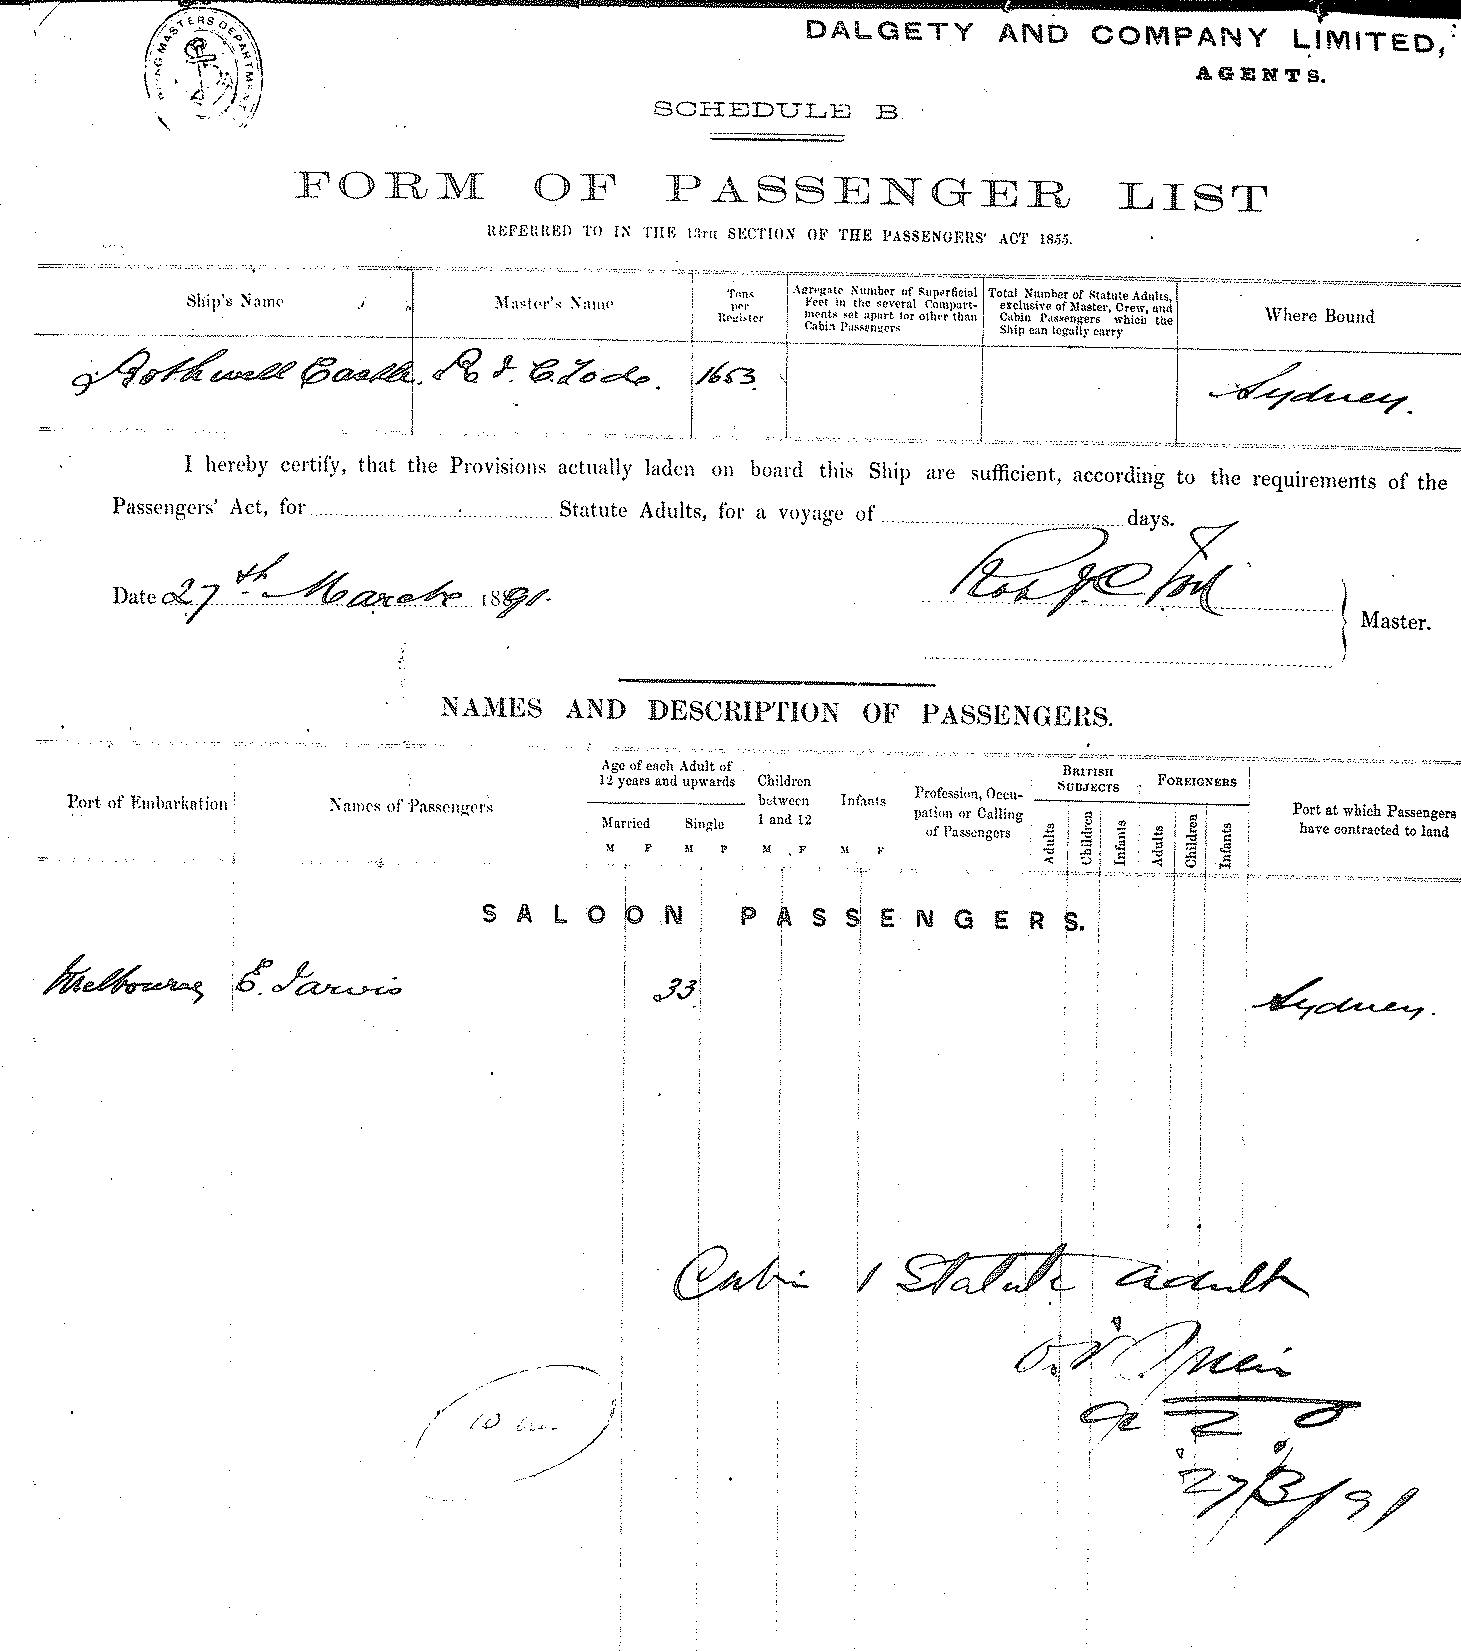 MASTERS DEPARTMENT
DALGETY AND COMPANY LIMITED,
AGENTS.
SCHEDULE B.
FORM OF PASSENGER LIST
REFERRED TO IN THE 13TH SECTION OF THE PASSENGERS' ACT 1855.
Ship's Name
Master's Name
Tons
per
Register
Agregate Number of Superficial
Feet in the several Compart-
ments set apart for other than
Cabin Passengers
Total Number of Statute Adults,
exclusive of Master, Crew, and
Cabin Passengers which the
Ship can legally carry
Where Bound
Rothwell Castle. R J. C. Todo. 1653. Sydney.
I hereby certify, that the Provisions actually laden on board this Ship are sufficient, according to the requirements of the
Passengers' Act, for Statute Adults, for a voyage of days.
Date 27th March 1891.
Robt J C Tod
Master.
NAMES AND DESCRIPTION OF PASSENGERS.
Port of Embarkation
Names of Passengers
Age of each Adult of
12 years and upwards
Married Single
M F M F
Children
between
1 and 12
M F
Infants
M F
Profession, Occu-
pation or Calling
of Passengers
BRITISH
SUBJECTS
Adults
Children
Infants
FOREIGNERS
Adults
Children
Infants
Port at which Passengers
have contracted to land
SALOON PASSENGERS.
Melbourne E. Jarvis 33 Sydney.
Cabin 1 Statute adult
27/3/91